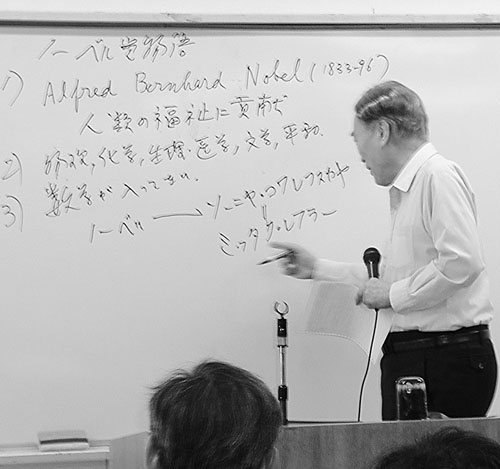 ノーベル賞物語
1) Alfred Bernhard Nobel (1833-96)
人類の福祉に貢献
2) 物理, 化学, 生理・医学, 文学, 平和.
3) 数学が入ってない.
ノーベル → ソーニャ・コワレフスカヤ
ミッタク・レフラー